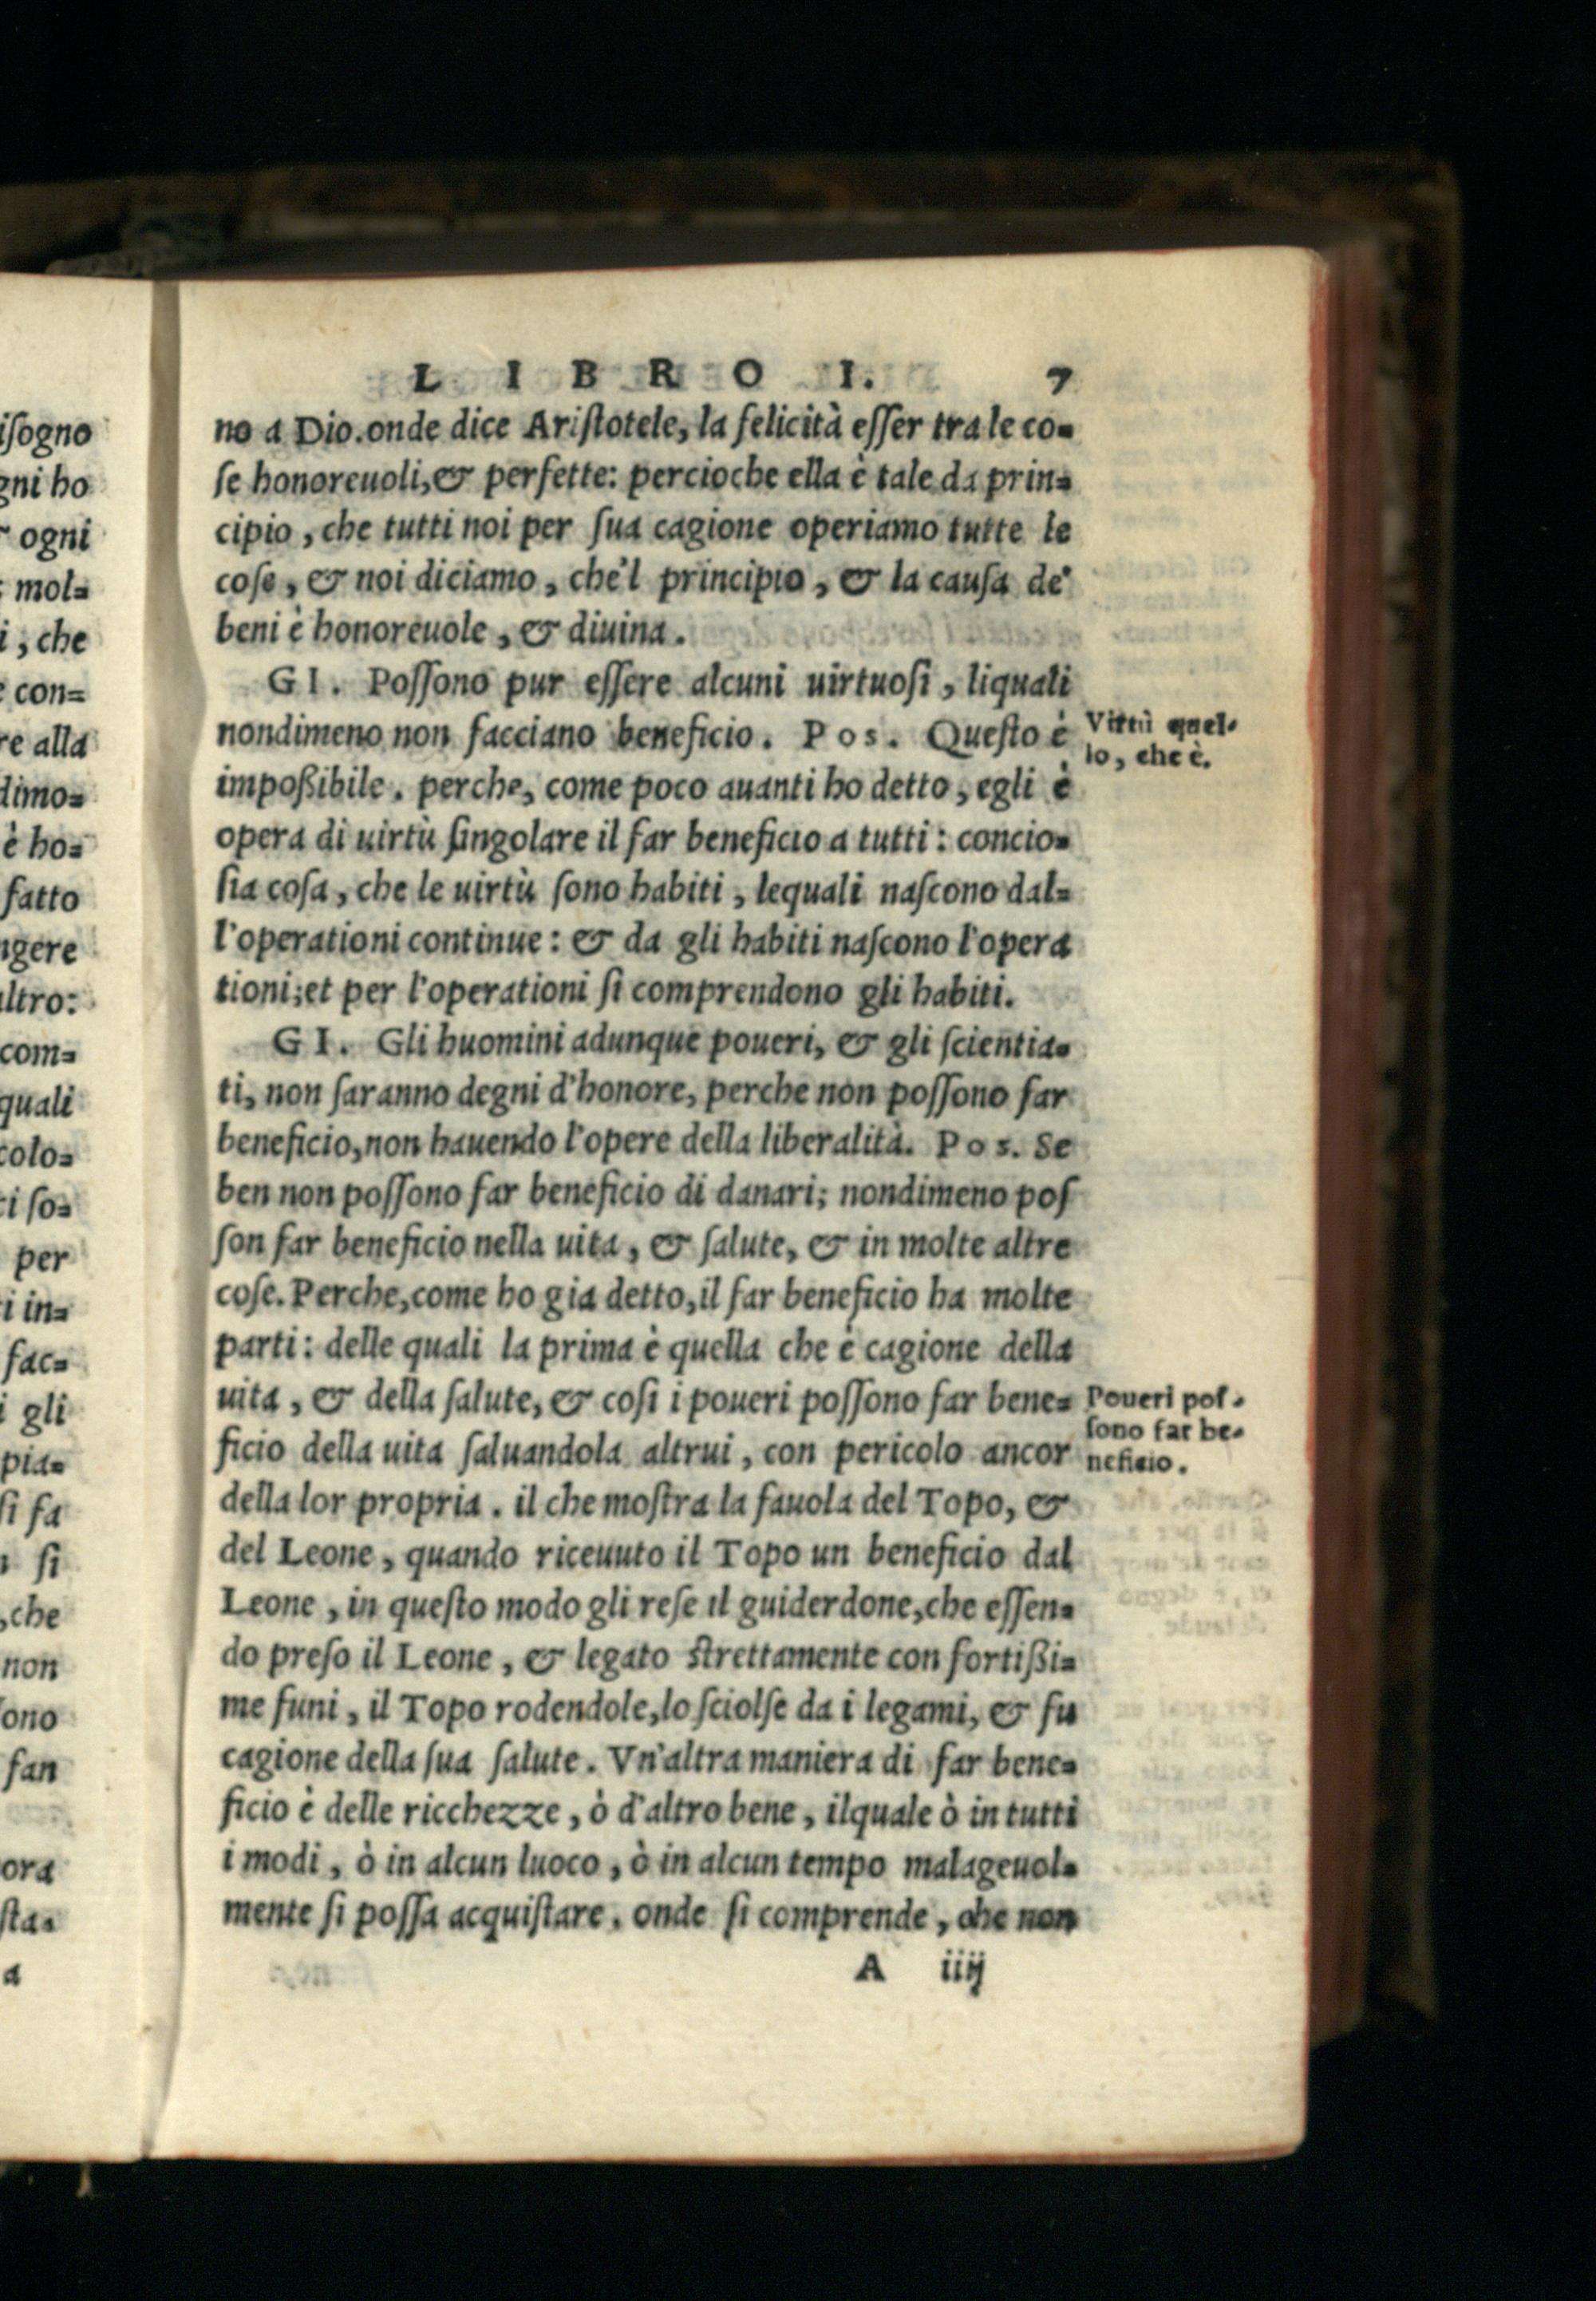 LIBRO I. 7
no a Dio.onde dice Ariſtotele, la felicità eſſer tra le co=
ſe honoreuoli,& perfette: percioche ella è tale da prin=
cipio, che tutti noi per ſua cagione operiamo tutte le
coſe, & noi diciamo, che'l principio, & la cauſa de'
beni è honoreuole, & diuina.
GI. Poſſono pur eſſere alcuni uirtuoſi, liquali
nondimeno non facciano beneficio. Pos. Queſto è
Virtù quel-
lo, che è.
impoßibile. perche, come poco auanti ho detto, egli è
opera di uirtù ſingolare il far beneficio a tutti: concio=
ſia coſa, che le uirtù ſono habiti, lequali naſcono dal=
l'operationi continue: & da gli habiti naſcono l'opera
tioni;et per l'operationi ſi comprendono gli habiti.
GI. Gli huomini adunque poueri, & gli ſcientia=
ti, non ſaranno degni d'honore, perche non poſſono far
beneficio,non hauendo l'opere della liberalità. Pos. Se
ben non poſſono far beneficio di danari; nondimeno poſ
ſon far beneficio nella uita, & ſalute, & in molte altre
coſe. Perche,come ho gia detto,il far beneficio ha molte
parti: delle quali la prima è quella che è cagione della
uita, & della ſalute, & coſi i poueri poſſono far bene=
ficio della uita ſaluandola altrui, con pericolo ancor
Poueri poſ-
ſono far be-
neficio.
della lor propria. il che moſtra la fauola del Topo, &
del Leone, quando riceuuto il Topo un beneficio dal
Leone, in queſto modo gli reſe il guiderdone,che eſſen=
do preſo il Leone, & legato ſtrettamente con fortißi=
me funi, il Topo rodendole,lo ſciolſe da i legami, & fu
cagione della ſua ſalute. Vn'altra maniera di far bene=
ficio è delle ricchezze, ò d'altro bene, ilquale ò in tutti
i modi, ò in alcun luoco, ò in alcun tempo malageuol=
mente ſi poſſa acquiſtare. onde ſi comprende, che non
A iiij